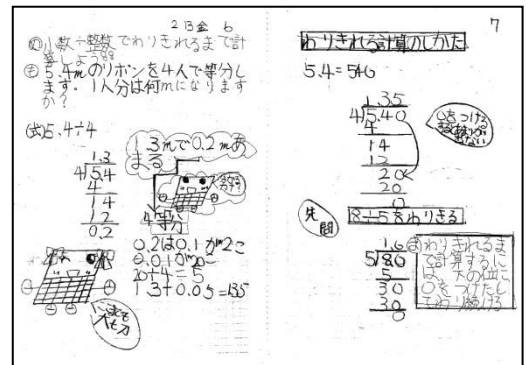 2 13 金 6
め 小数÷整数でわりきれるまで計
算しよう
も 5.4mのリボンを4人で等分し
ます。1人分は何mになります
か?
(式)5.4÷4
1.3
4 5.4
4
14
12
0.2
1.3mで0.2mあ
まる
4等分
0.2は0.1が2こ
0.01が20こ
20÷4=5
1.3+0.05=1.35
7
わりきれる計算のしかた
5.4=5.40
1.35
4 5.40
4
14
12
20
20
0
0をつける
先問
8÷5をわりきる
1.6
5 8.0
5
30
30
0
ま わりきれるま
で計算するに
は、下の位に
0をつけたし
てわり続ける